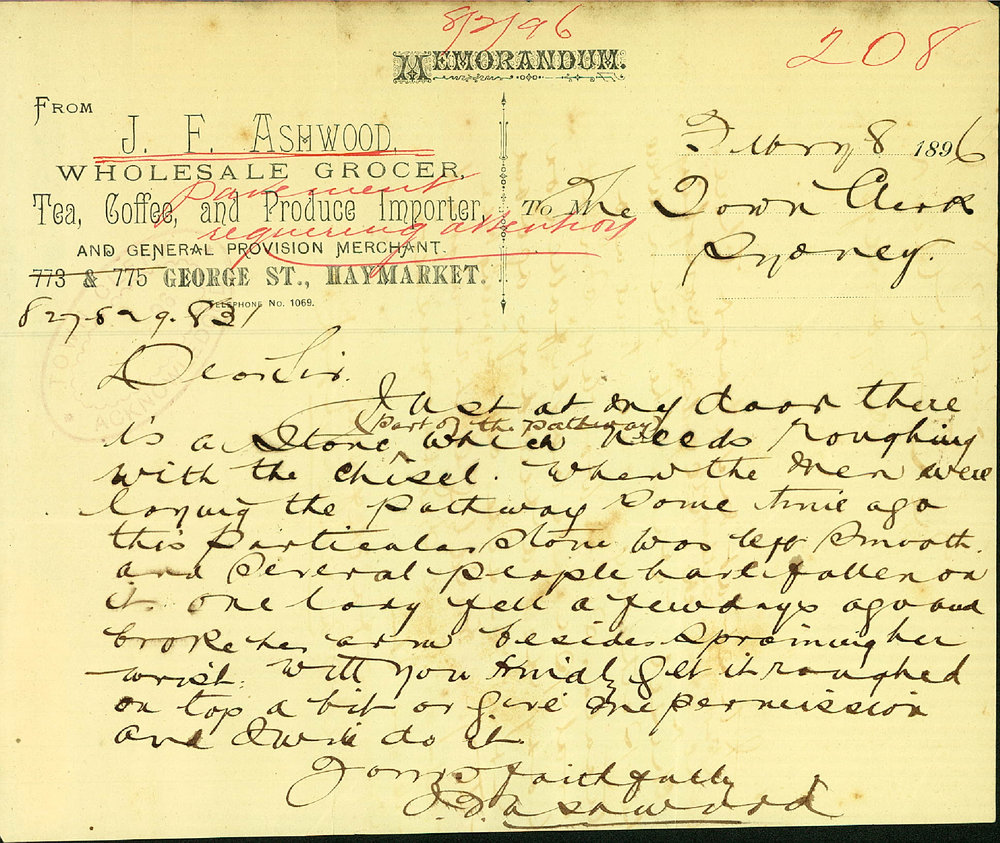 8/2/96
208
MEMORANDUM.
FROM
J. F. ASHWOOD,
WHOLESALE GROCER,
Tea, Coffee, and Produce Importer,
AND GENERAL PROVISION MERCHANT.
773 & 775 GEORGE ST., HAYMARKET.
TELEPHONE No. 1069.
827-829-831
pavement
requiring attention
Febry 8 1896
To The Town Clerk
Sydney.
Dear Sir
Just at my door there
is a Stone (part of the pathway) which needs roughing
with the chisel. When the men were
laying the pathway some time ago
this particular stone was left smooth.
and several people have fallen on
it. one lady fell a few days ago and
broke her arm besides spraining her
wrist. Will you kindly get it roughed
on top a bit or give me permission
and I will do it.
Yours faithfully
J. F. Ashwood